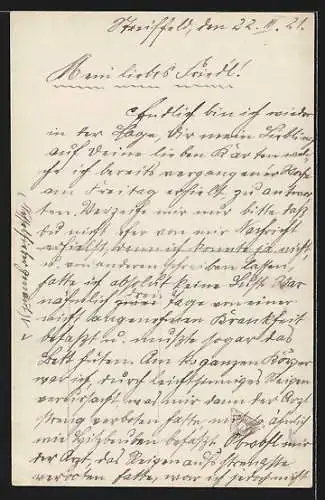 Streiffeld, den 22. II. 21.
Mein liebes Friedl!
Endlich bin ich wieder
in der Lage, Dir mein Liebling
auf Deine lieben Karten welche
ich bereits vergangener Woche
am Freitag erhielt, zu antwor-
ten. Verzeihe mir nur bitte daß
du nicht eher von mir Nachricht
erhieltst, denn ich konnte ja nicht
u. von anderen schreiben lassen,
hatte ich absolut keine Lust. War
nämlich drei Tage von einer
nicht angenehmen Krankheit
befaßt u. mußte sogar das
Bett hüten. Am ganzen Körper
war ich, durch leichtsinniges
verursacht was mir dann der Arzt
streng verboten hatte, ähnlich
wie Hitzbeulen befaßt. Obwohl mir
der Arzt, das aufs strengste
verboten hatte, war ich jedoch nicht